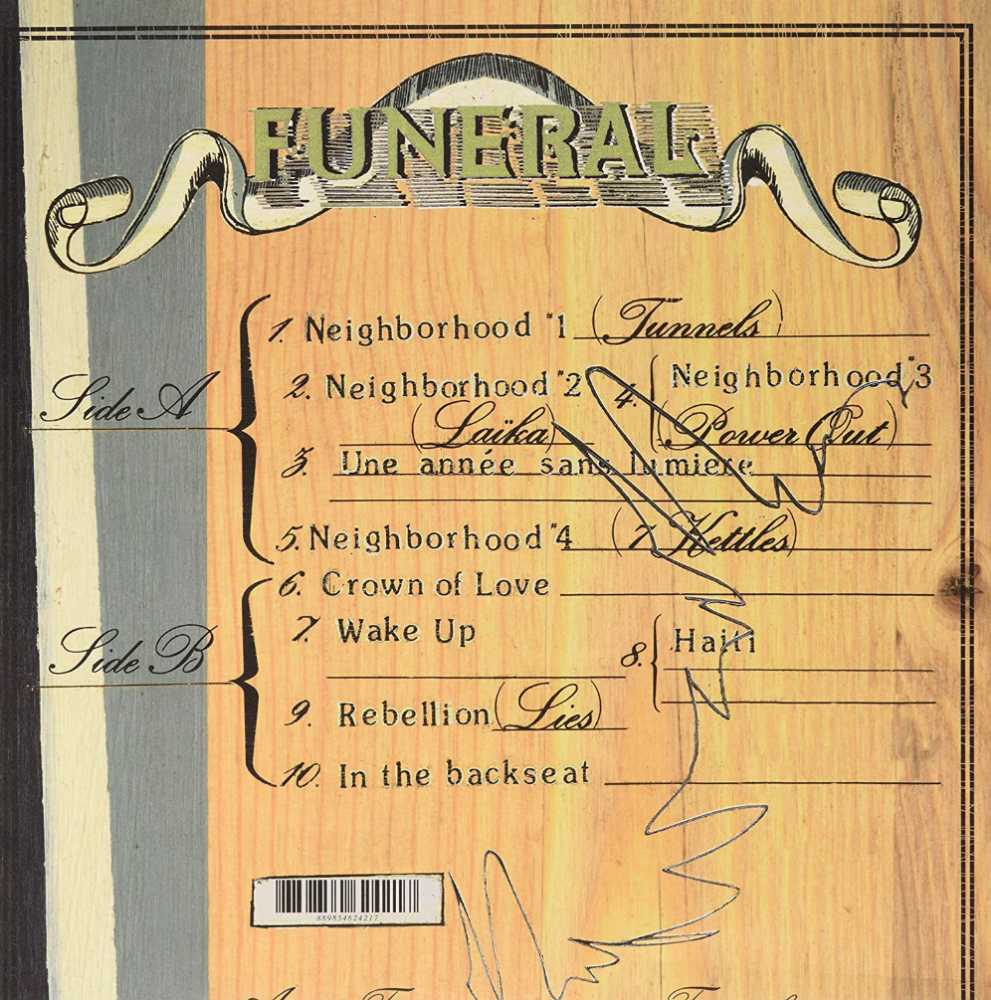 FUNERAL
Side A
1. Neighborhood #1 (Tunnels)
2. Neighborhood #2 (Laïka)
3. Une année sans lumiere
4. Neighborhood #3 (Power Out)
5. Neighborhood #4 (7. Kettles)
Side B
6. Crown of Love
7. Wake Up
8. Haiti
9. Rebellion (Lies)
10. In the backseat
889854624217